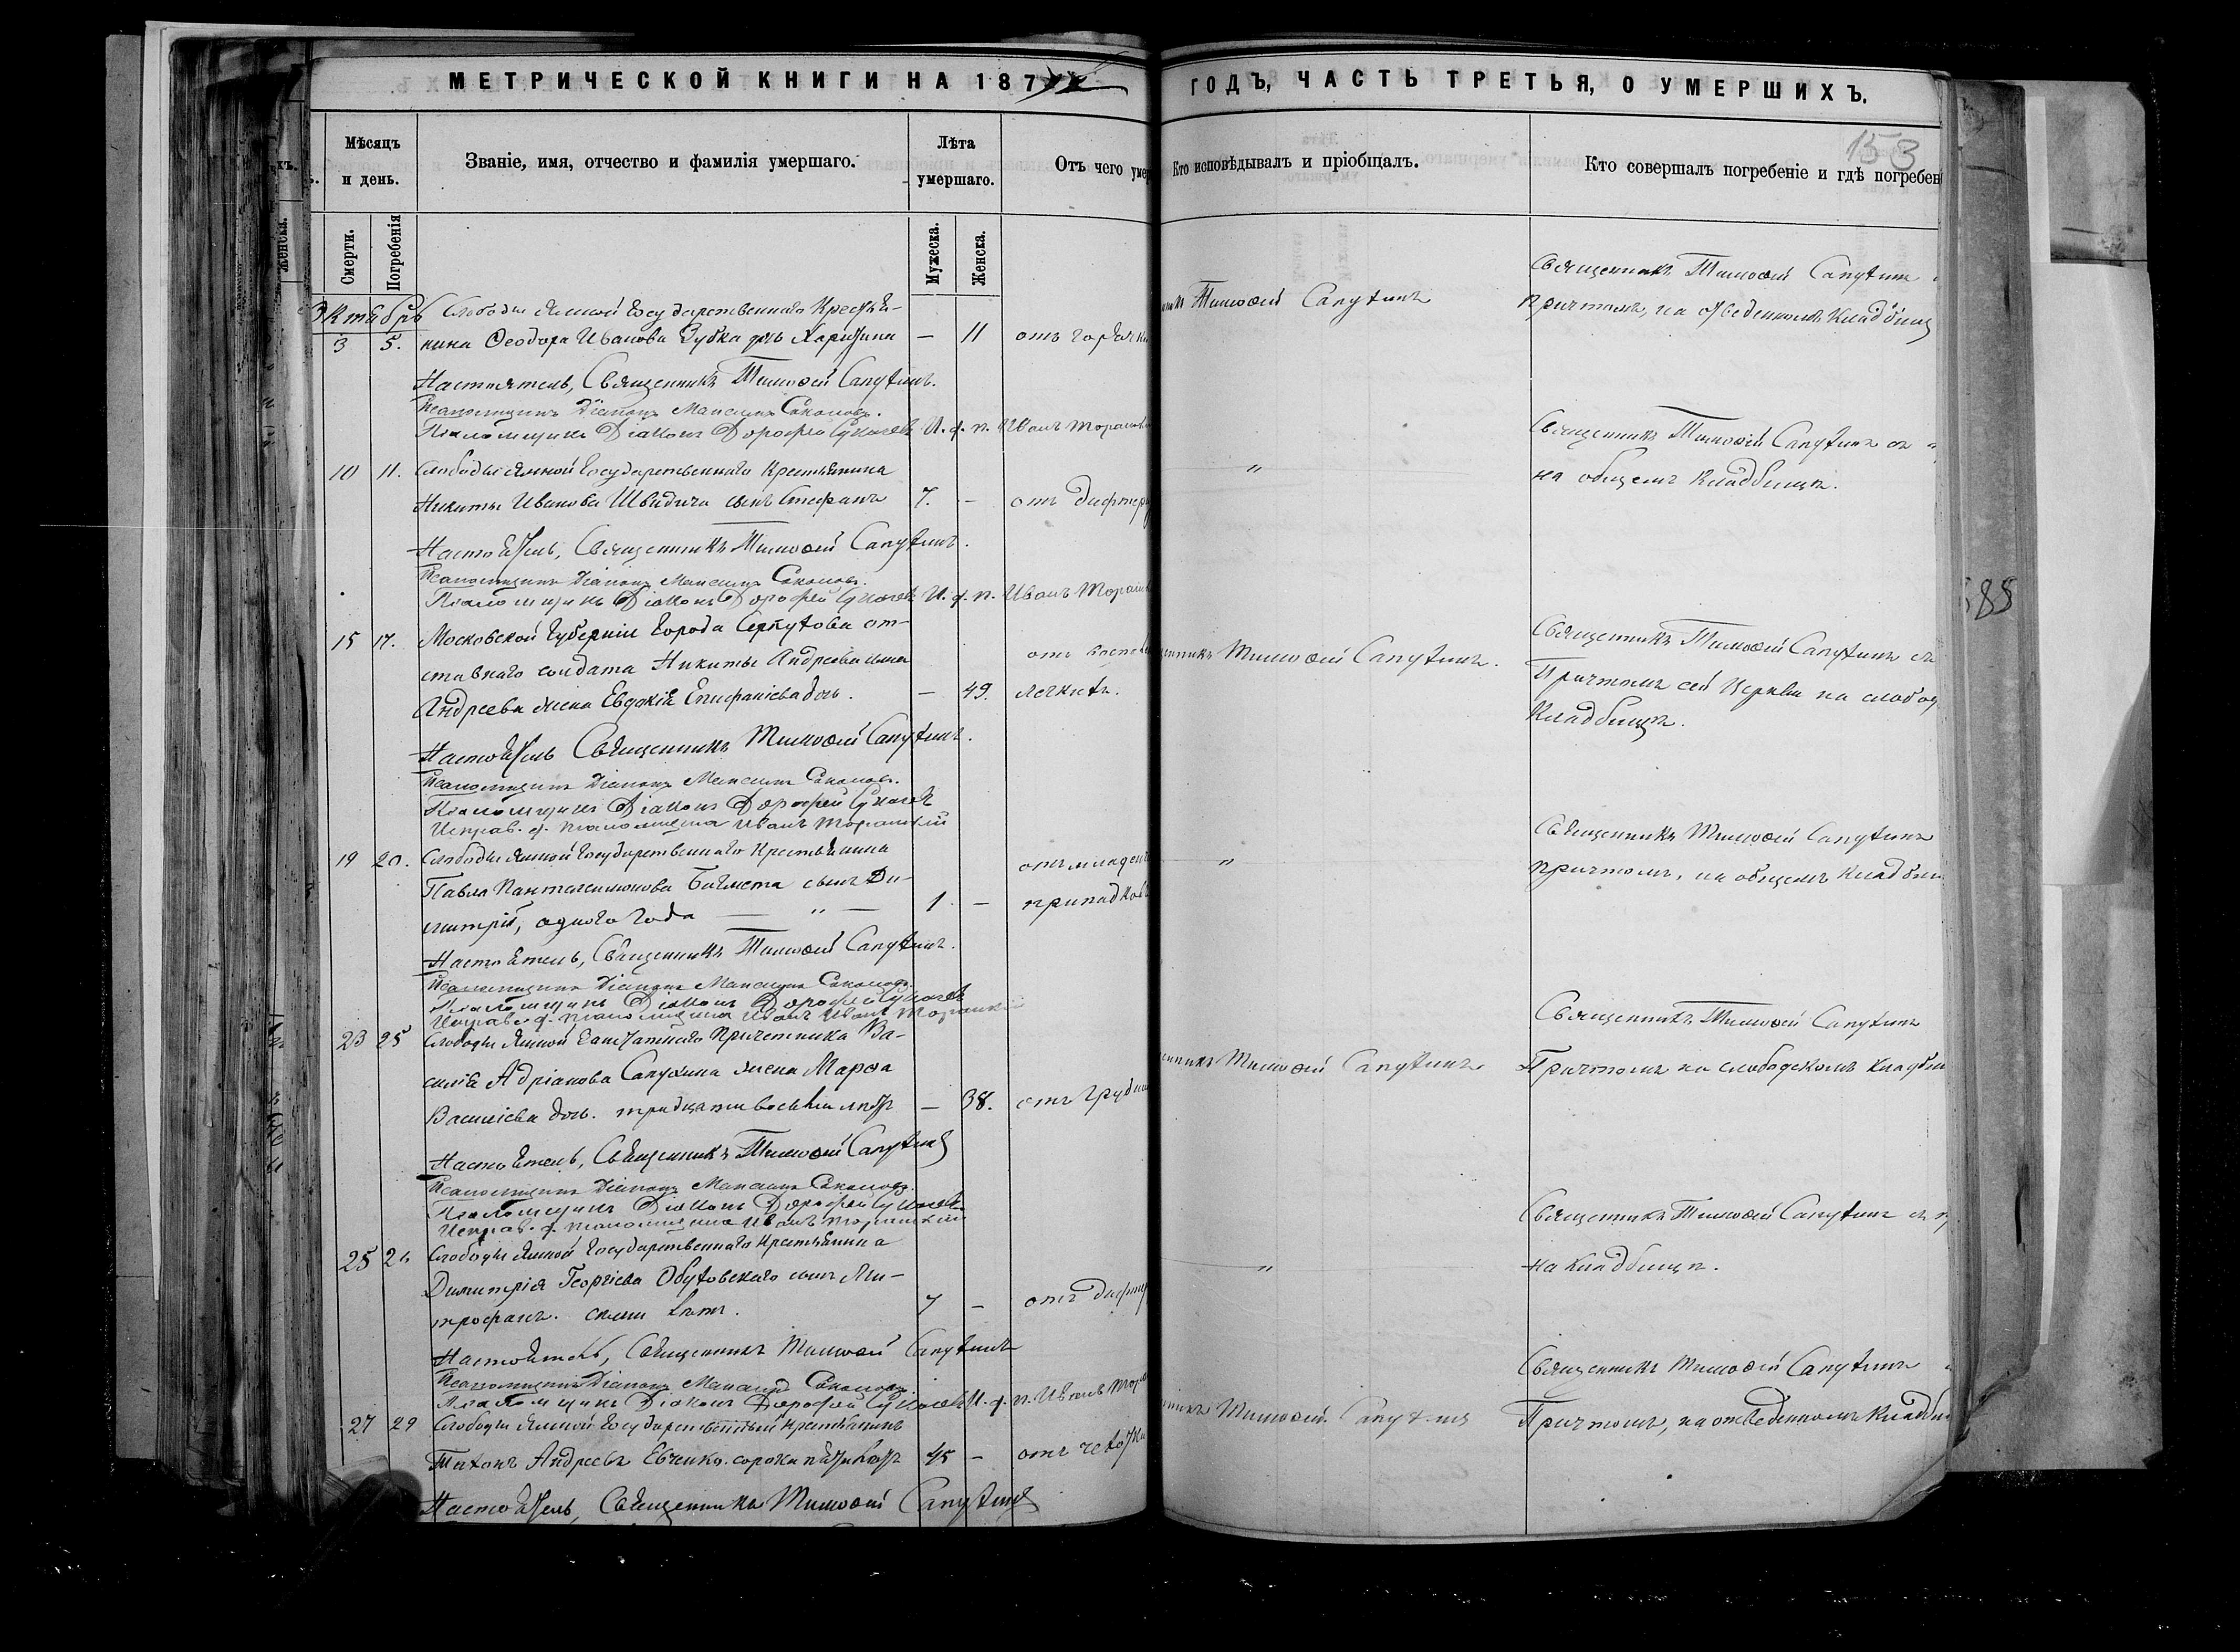 МЕТРИЧЕСКОЙ КНИГИ НА 187
ГОДЪ, ЧАСТЬ ТРЕТЬЯ, О УМЕРШИХЪ.
153
Мѣсяцъ и день.
Званіе, имя, отчество и фамилія умершаго.
Лѣта умершаго.
Отъ чего умер
Кто исповѣдывалъ и пріобщалъ.
Кто совершалъ погребеніе и гдѣ погребен
Женска.
Смерти.
Погребенія
Мужеска.
Женска.
Октябрь Слободы Ямной Государственнаго Крестья-
3 5. нина Ѳеодора Иванова Зубка дочь Харитина — 11 отъ горячки
Тимоѳей Сапухинъ
Священникъ Тимоѳей Сапухинъ
причтомъ, на отведенномъ кладбищ
Настоятель, Священникъ Тимоѳей Сапухинъ.
Псаломщикъ Діаконъ Максимъ Соколовъ.
Псаломщикъ Діаконъ Дорофей И. д. п. Иванъ
10 11. Слободы Ямной Государственнаго Крестьянина
Никиты Иванова Швидича сынъ Стефанъ 7. — отъ дифтер
"
Священникъ Тимоѳей Сапухинъ съ
на общемъ кладбищѣ.
Настоятель, Священникъ Тимоѳей Сапухинъ.
Псаломщикъ Діаконъ Максимъ Соколовъ.
Псаломщикъ Діаконъ Дорофей И. д. п. Иванъ
15 17. Московской Губерніи Города Серпухова от-
ставнаго солдата Никиты Андреева сына
Андреева жена Евдокія Епифаніева дочь. — 49.
отъ воспа
легкихъ.
Тимоѳей Сапухинъ.
Священникъ Тимоѳей Сапухинъ съ
Причтомъ сей Церкви на слобод
Кладбищѣ.
Настоятель Священникъ Тимоѳей Сапухинъ.
Псаломщикъ Діаконъ Максимъ Соколовъ.
Псаломщикъ Діаконъ Дорофей
Исправ. д. псаломщика Иванъ
19 20. Слободы Ямной Государственнаго Крестьянина
Павла Пантелеимонова сынъ Ди-
митрій, одного года — " — 1. —
отъ младен
припадков
"
Священникъ Тимоѳей Сапухинъ
причтомъ, на общемъ кладби
Настоятель, Священникъ Тимоѳей Сапухинъ.
Псаломщикъ Діаконъ Максимъ Соколовъ.
Псаломщикъ Діаконъ Дорофей
Исправ. д. псаломщика Иванъ
23 25 Слободы Ямной Заштатнаго Причетника Ва-
силія Адріанова Сапухина жена Марѳа
Василіева дочь. тридцати восьми лѣтъ — 38. отъ грудн
Тимоѳей Сапухинъ
Священникъ Тимоѳей Сапухинъ
Причтомъ на слободскомъ кладби
Настоятель, Священникъ Тимоѳей Сапухинъ
Псаломщикъ Діаконъ Максимъ Соколовъ.
Псаломщикъ Діаконъ Дорофей
Исправ. д. псаломщика Иванъ
25 Слободы Ямной Государственнаго Крестьянина
Димитрія Георгіева Обуховскаго сынъ Ми-
трофанъ. семи лѣтъ. 7 — отъ дифтер
"
Священникъ Тимоѳей Сапухинъ съ
на кладбищѣ.
Настоятель, Священникъ Тимоѳей Сапухинъ
Псаломщикъ Діаконъ Максимъ Соколовъ.
Псаломщикъ Діаконъ Дорофей И. д. п. Иванъ
27 29 Слободы Ямной Государственный Крестьянинъ
Тихонъ Андреевъ Евченко. сорока пяти лѣтъ 45 — отъ чахотки
Тимоѳей Сапухинъ
Священникъ Тимоѳей Сапухинъ
Причтомъ, на отведенномъ кладби
Настоятель, Священникъ Тимоѳей Сапухинъ